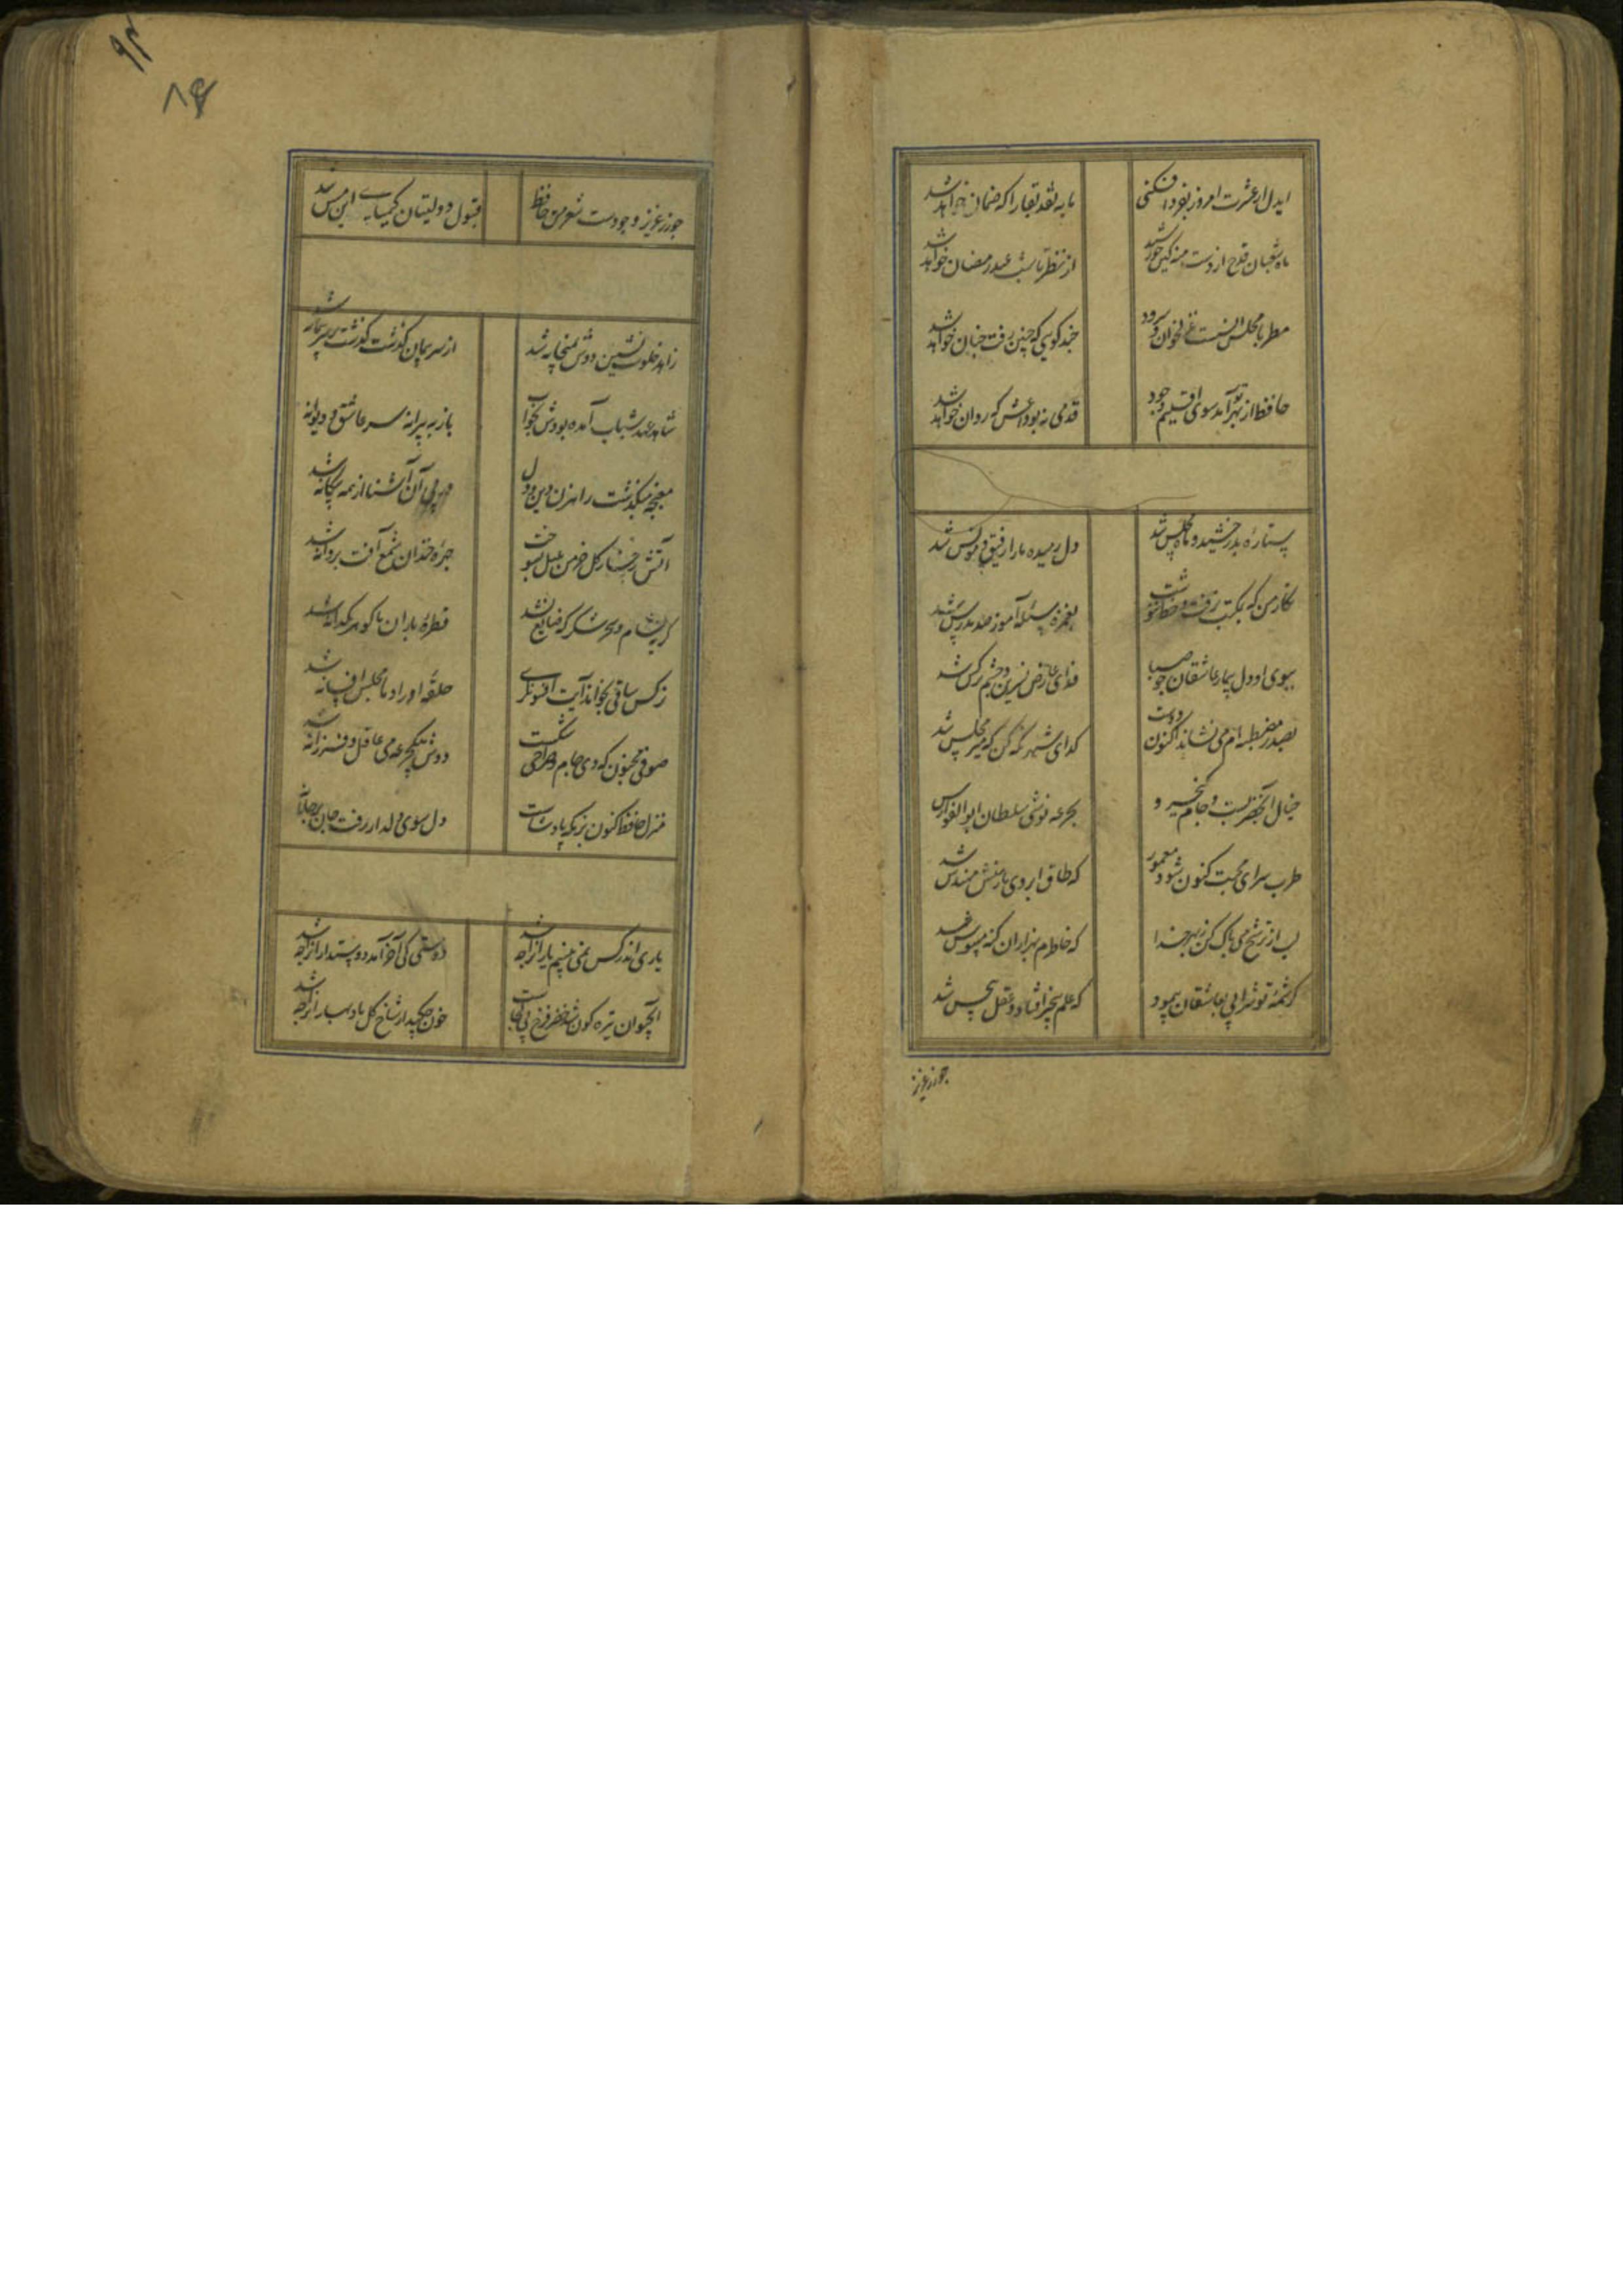 ایدل ار عشرت امروز بفردا فکنی
مایه نقد بقا را که ضمان خواهد شد
ماه شعبان قدح از دست منه کین خورشید
از نظر تا شب عید رمضان خواهد شد
مطربا مجلس انست غزل خوان و سرود
چند گویی که چنین رفت چنان خواهد شد
حافظ از بهر تو آمد سوی اقلیم وجود
قدمی نه بوداعش که روان خواهد شد
ستاره بدرخشید و ماه مجلس شد
دل رمیده ما را رفیق و مونس شد
نگار من که بمکتب نرفت و خط ننوشت
بغمزه مسئله آموز صد مدرس شد
ببوی او دل بیمار عاشقان چو صبا
فدای عارض نسرین و چشم نرگس شد
بصدر مصطبه ام می نشاند اکنون دوست
گدای شهر نگه کن که میر مجلس شد
خیال آب خضر بست و جام کیخسرو
بجرعه نوشی سلطان ابوالفوارس شد
طرب سرای محبت کنون شود معمور
که طاق ابروی یار منش مهندس شد
لب از ترشح می پاک کن ز بهر خدا
که خاطرم بهزاران گنه موسوس شد
کرشمه تو شرابی بعاشقان پیمود
که علم بیخبر افتاد و عقل بیحس شد
چو زر عزیز
۹۴
۸۶
چو زر عزیز وجودست شعر من حافظ
قبول دولتیان کیمیای این مس شد
زاهد خلوت نشین دوش بمیخانه شد
از سر پیمان گذشت بر سر پیمانه شد
شاهد عهد شباب آمده بودش بخواب
باز به پیرانه سر عاشق و دیوانه
مغبچه میگذشت راهزن دین و دل
در پی آن آشنا از همه بیگانه شد
آتش رخسار گل خرمن بلبل بسوخت
چهره خندان شمع آفت پروانه شد
گریه شام و سحر شکر که ضایع نشد
قطره باران ما گوهر یکدانه شد
نرگس ساقی بخواند آیت افسونگری
حلقه اوراد ما مجلس افسانه شد
صوفی مجنون که دی جام و صراحی شکست
دوش بیکجرعه می عاقل و فرزانه شد
منزل حافظ کنون بزمگه پادشاست
دل سوی دلدار رفت جان بر جانانه
یاری اندر کس نمی بینیم یاران را چه شد
دوستی کی آخر آمد دوستداران را چه شد
آب حیوان تیره گون شد خضر فرخ پی کجاست
خون چکید از شاخ گل باد بهاران را چه شد